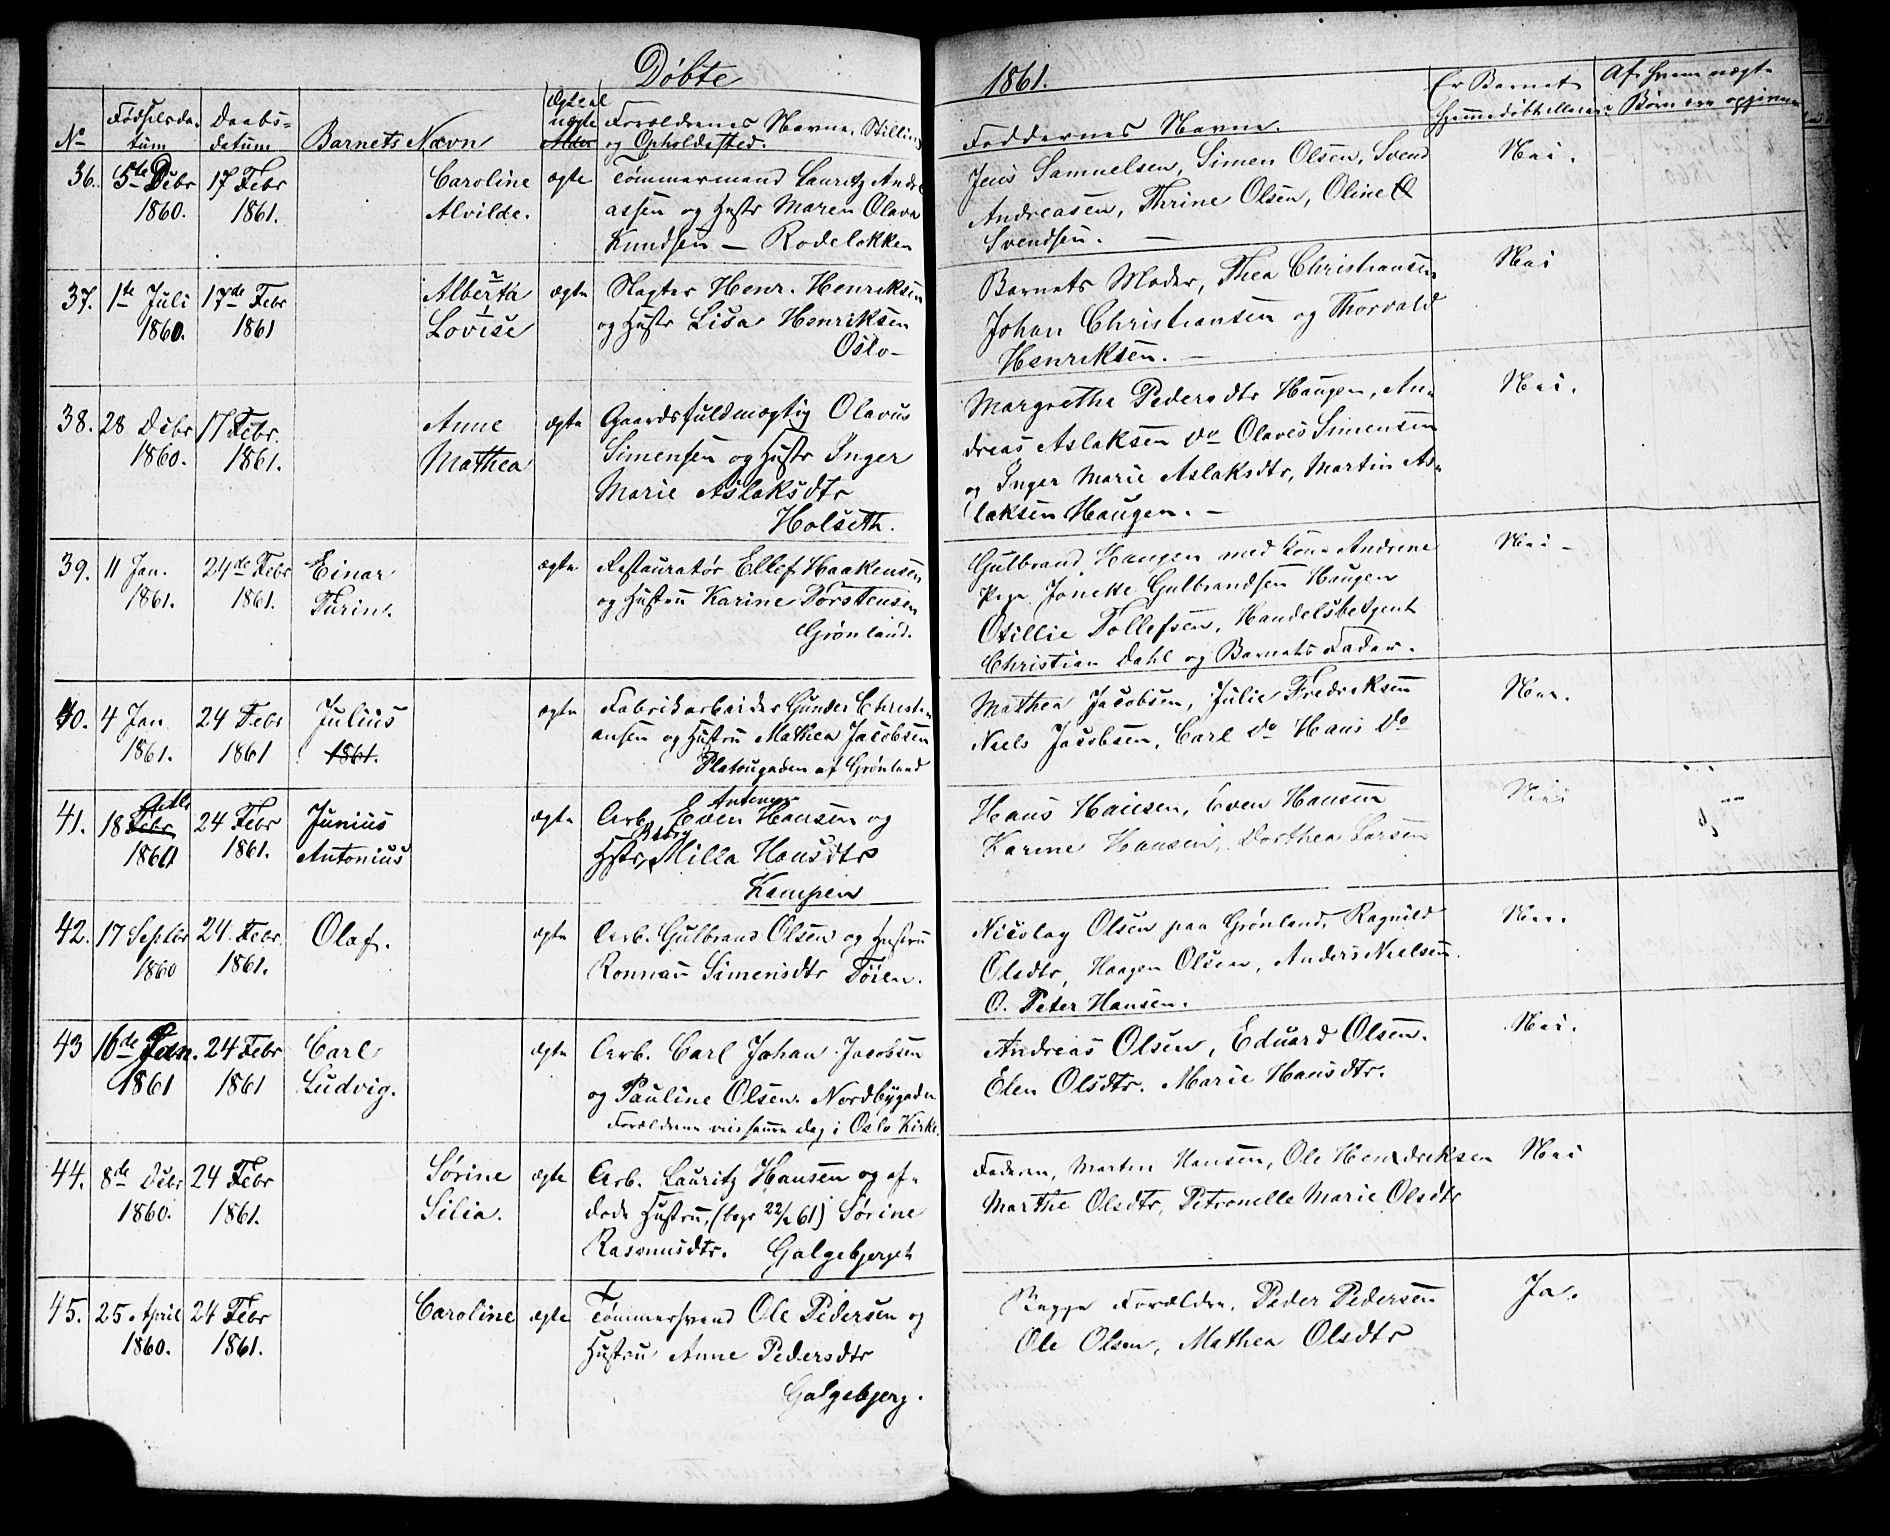 Døbte
1861.
No Fødselsda- Daabs- Barnets Navn Forældrenes Navne, Stilling Faddernes Navne. Er Barnet Af hvem uægte
tum datum og Opholdssted. hjemmedøbt eller ei Børn ere opgivne
36. 5te Debr 17 Febr Caroline ægte Tømmermand Lauritz Andre Jens Samuelsen, Simen Olsen, Svend Nei.
1860. 1861. Alvilde. assen og Hustr Maren Olava Andreasen, Thrine Olsen, Oline
Knudsen — Rodeløkken Svendsen. —
37. 1te Juli 17de Febr Alberta ægte Slagter Henr. Henriksen Barnets Moder, Thea Christiansen Nei
1860. 1861 Lovise og Hustr Lisa Henriksen Johan Christiansen og Thorvald
Oslo- Henriksen. —
38. 28 Debr 17 Febr. Anne ægte Gaardsfuldmægtig Olavus Margrethe Pedersdtr Haugen, An- Nei.
1860. 1861. Mathea Simensen og Hustr Inger dreas Aslaksen Do Olaves Simensen
Marie Aslaksdtr og Inger Marie Aslaksdtr, Martin As-
Holseth. laksen Haugen. —
39. 11 Jan. 24de Febr Einar ægte Restauratør Ellef Haakensen Gulbrand Haugen med Kone Andrine Nei -
1861. 1861. Turin. og Hustru Karine Torstensen Pige Jonette Gulbrandsen Haugen
Grønland. Otillie Tollefsen, Handelsbetjent
Christian Dahl og Barnets Fader.
40. 4 Jan. 24 Febr Julius ægte Fabrikarbeider Gunder Christi- Mathea Jacobsen, Julie Fredriksen Nei.
1861. 1861 1861. ansen og Hustru Mathea Jacobsen Niels Jacobsen, Carl Do Hans Do
Platougaden af Grønland
41. 18 Febr 24 Febr Junius ægte Arb. Even Hansen og Hans Hansen, Even Hansen Nei
1861. Antonius Hstr, Milla Hansdtr Karine Hansen, Dorthea Larsen
Kampen
42. 17 Septbr 24 Febr. Olaf. ægte Arb. Gulbrand Olsen og Hustru Nicolay Olsen paa Grønland, Ragnild Nei.
1860 1861. Ronnau Simensdtr Tøien. Olsdtr, Haagen Olsen, Anders Nielsen.
O. Peter Hansen.
43 16de Jan. 24 Febr Carl ægte Arb. Carl Johan Jacobsen Andreas Olsen, Eduard Olsen. Nei.
1861 1861 Ludvig. og Pauline Olsen. Nordbygaden Elen Olsdtr. Marie Hansdtr.
Forældrene viet samme Dag i Oslo Kirke.
44. 8de Debr 24 Febr Sørine ægte Arb. Lauritz Hansen og af- Faderen, Martin Hansen, Ole Hendreksen Nei
1860. 1861. Silia. døde Hustru, (begr 22/2 61) Sørine Marthe Olsdtr, Petronelle Marie Olsdtr
Rasmusdtr. Galgebjerget
45. 25 April 24 Febr Caroline ægte Tømmersvend Ole Pedersen og Begge Forældre, Peder Pedersen Ja.
1860. 1861. Hustru Anne Pedersdtr Ole Olsen, Mathea Olsdtr
Galgebjerg.